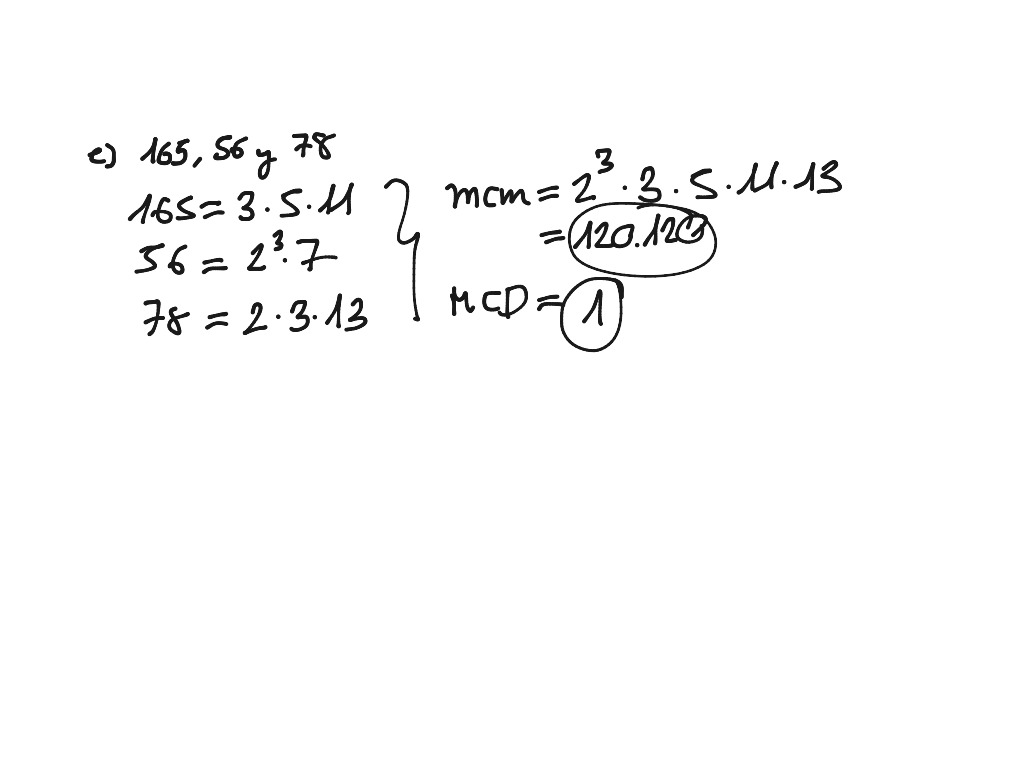 e) 165, 56 y 78
165 = 3 · 5 · 11
56 = 2³ · 7
78 = 2 · 3 · 13
mcm = 2³ · 3 · 5 · 11 · 13
= 120.120
MCD = 1